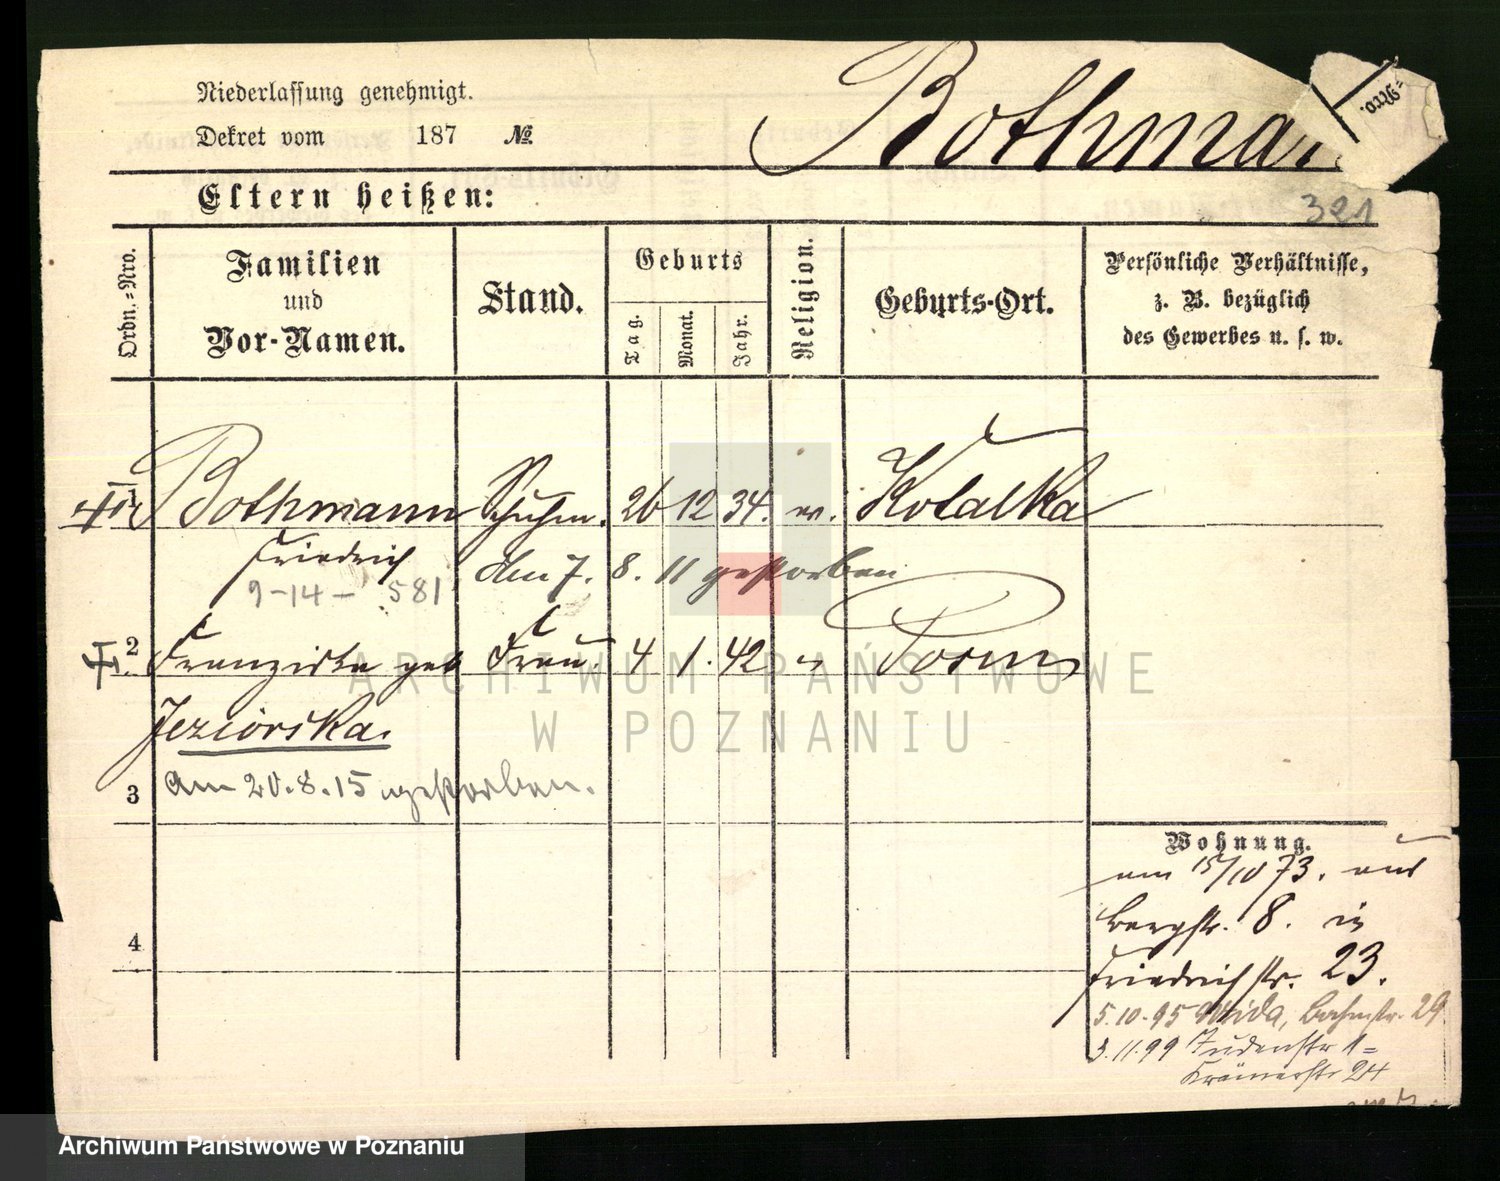 Niederlassung genehmigt.
Dekret vom 187 №
Bothma
=Nro.
Eltern heißen:
321
Ordn.=Nro.
Familien und Vor-Namen.
Stand.
Geburts
Tag. Monat. Jahr.
Religion.
Geburts-Ort.
Persönliche Verhältnisse, z. B. bezüglich des Gewerbes u. s. w.
1 Bothmann Schuhm. 26 12 34. ev. Kobalka
Friedrich den 7. 8. 11 gestorben
9-14- 581
2 Franziska geb Frau. 4 1. 42 " Posen
Jeziorska.
3 Am 20.8.15 gestorben.
4
Wohnung.
am 15/10 73. aus
Bergstr. 8. in
Friedrichstr. 23.
5.10.95 Wilda, Bahnstr. 29
3.11.99 Judenstr 1=
Krämerstr 24
ARCHIWUM PAŃSTWOWE
W POZNANIU
Archiwum Państwowe w Poznaniu